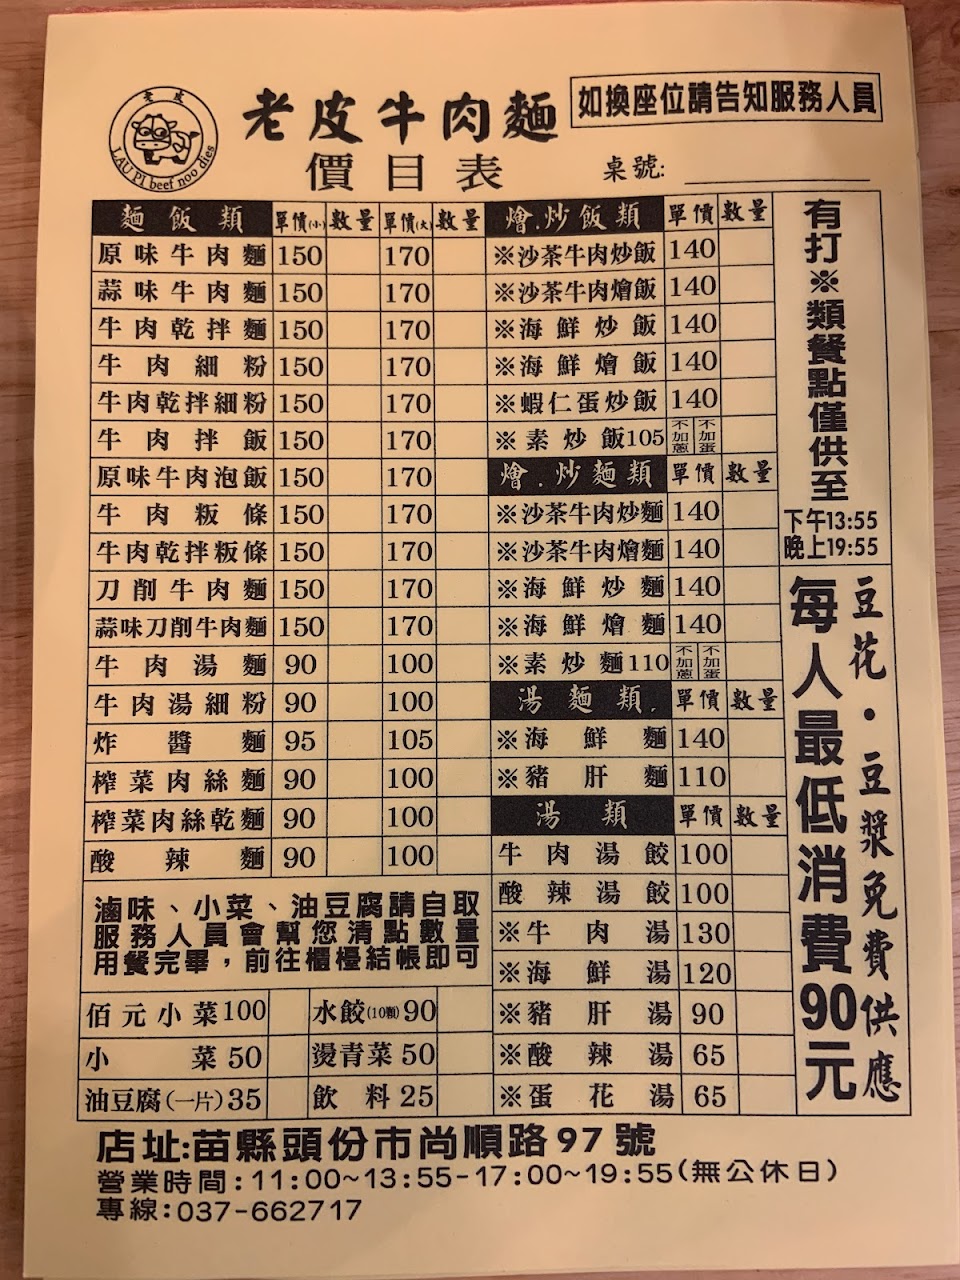 老皮
LAU PI beef noo dies
老皮牛肉麵
如換座位請告知服務人員
價目表
桌號:
麵飯類 單價(小) 數量 單價(大) 數量
原味牛肉麵 150 170
蒜味牛肉麵 150 170
牛肉乾拌麵 150 170
牛肉細粉 150 170
牛肉乾拌細粉 150 170
牛肉拌飯 150 170
原味牛肉泡飯 150 170
牛肉粄條 150 170
牛肉乾拌粄條 150 170
刀削牛肉麵 150 170
蒜味刀削牛肉麵 150 170
牛肉湯麵 90 100
牛肉湯細粉 90 100
炸醬麵 95 105
榨菜肉絲麵 90 100
榨菜肉絲乾麵 90 100
酸辣麵 90 100
滷味、小菜、油豆腐請自取
服務人員會幫您清點數量
用餐完畢，前往櫃檯結帳即可
佰元小菜 100 水餃(10顆) 90
小菜 50 燙青菜 50
油豆腐(一片) 35 飲料 25
燴.炒飯類 單價 數量
※沙茶牛肉炒飯 140
※沙茶牛肉燴飯 140
※海鮮炒飯 140
※海鮮燴飯 140
※蝦仁蛋炒飯 140
※素炒飯 105 不加蔥 不加蛋
燴.炒麵類 單價 數量
※沙茶牛肉炒麵 140
※沙茶牛肉燴麵 140
※海鮮炒麵 140
※海鮮燴麵 140
※素炒麵 110 不加蔥 不加蛋
湯麵類. 單價 數量
※海鮮麵 140
※豬肝麵 110
湯類 單價 數量
牛肉湯餃 100
酸辣湯餃 100
※牛肉湯 130
※海鮮湯 120
※豬肝湯 90
※酸辣湯 65
※蛋花湯 65
有打※類餐點僅供至
下午13:55
晚上19:55
豆花・豆漿免費供應
每人最低消費90元
店址:苗縣頭份市尚順路97號
營業時間:11:00~13:55-17:00~19:55(無公休日)
專線:037-662717